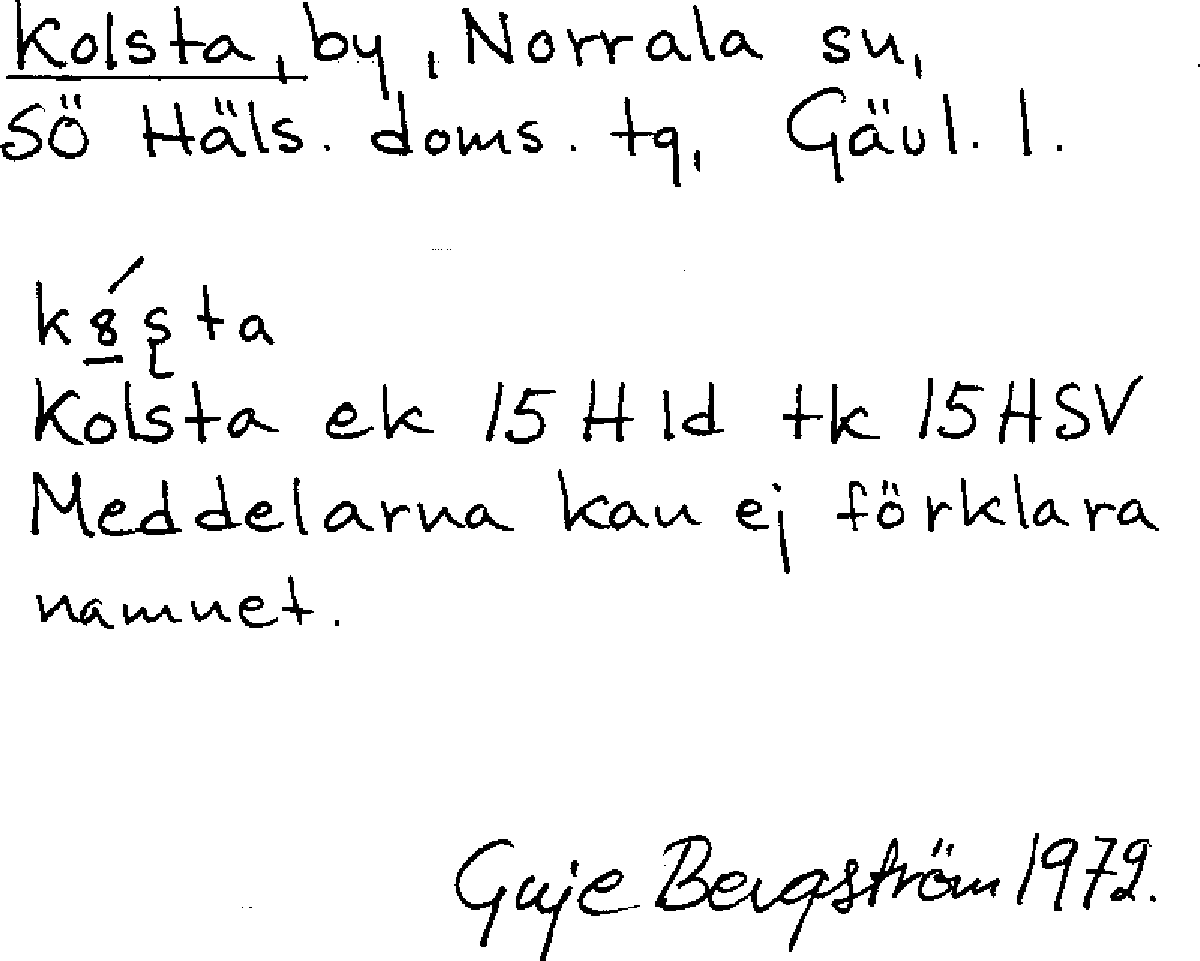 Kolsta, by, Norrala sn,
SÖ Häls. doms. tg, Gävl. l.
Kolsta ek 15 H 1d tk 15 HSV
Meddelarna kan ej förklara
namnet.
Guje Bergström 1972.